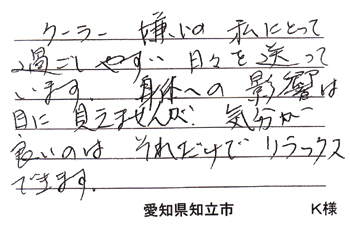 クーラー 嫌いの 私にとって
過ごしやすい 日々を送って
います。身体への 影響は
目に 見えませんが、気分が
良いのは それだけで リラックス
できます。
愛知県知立市 K様